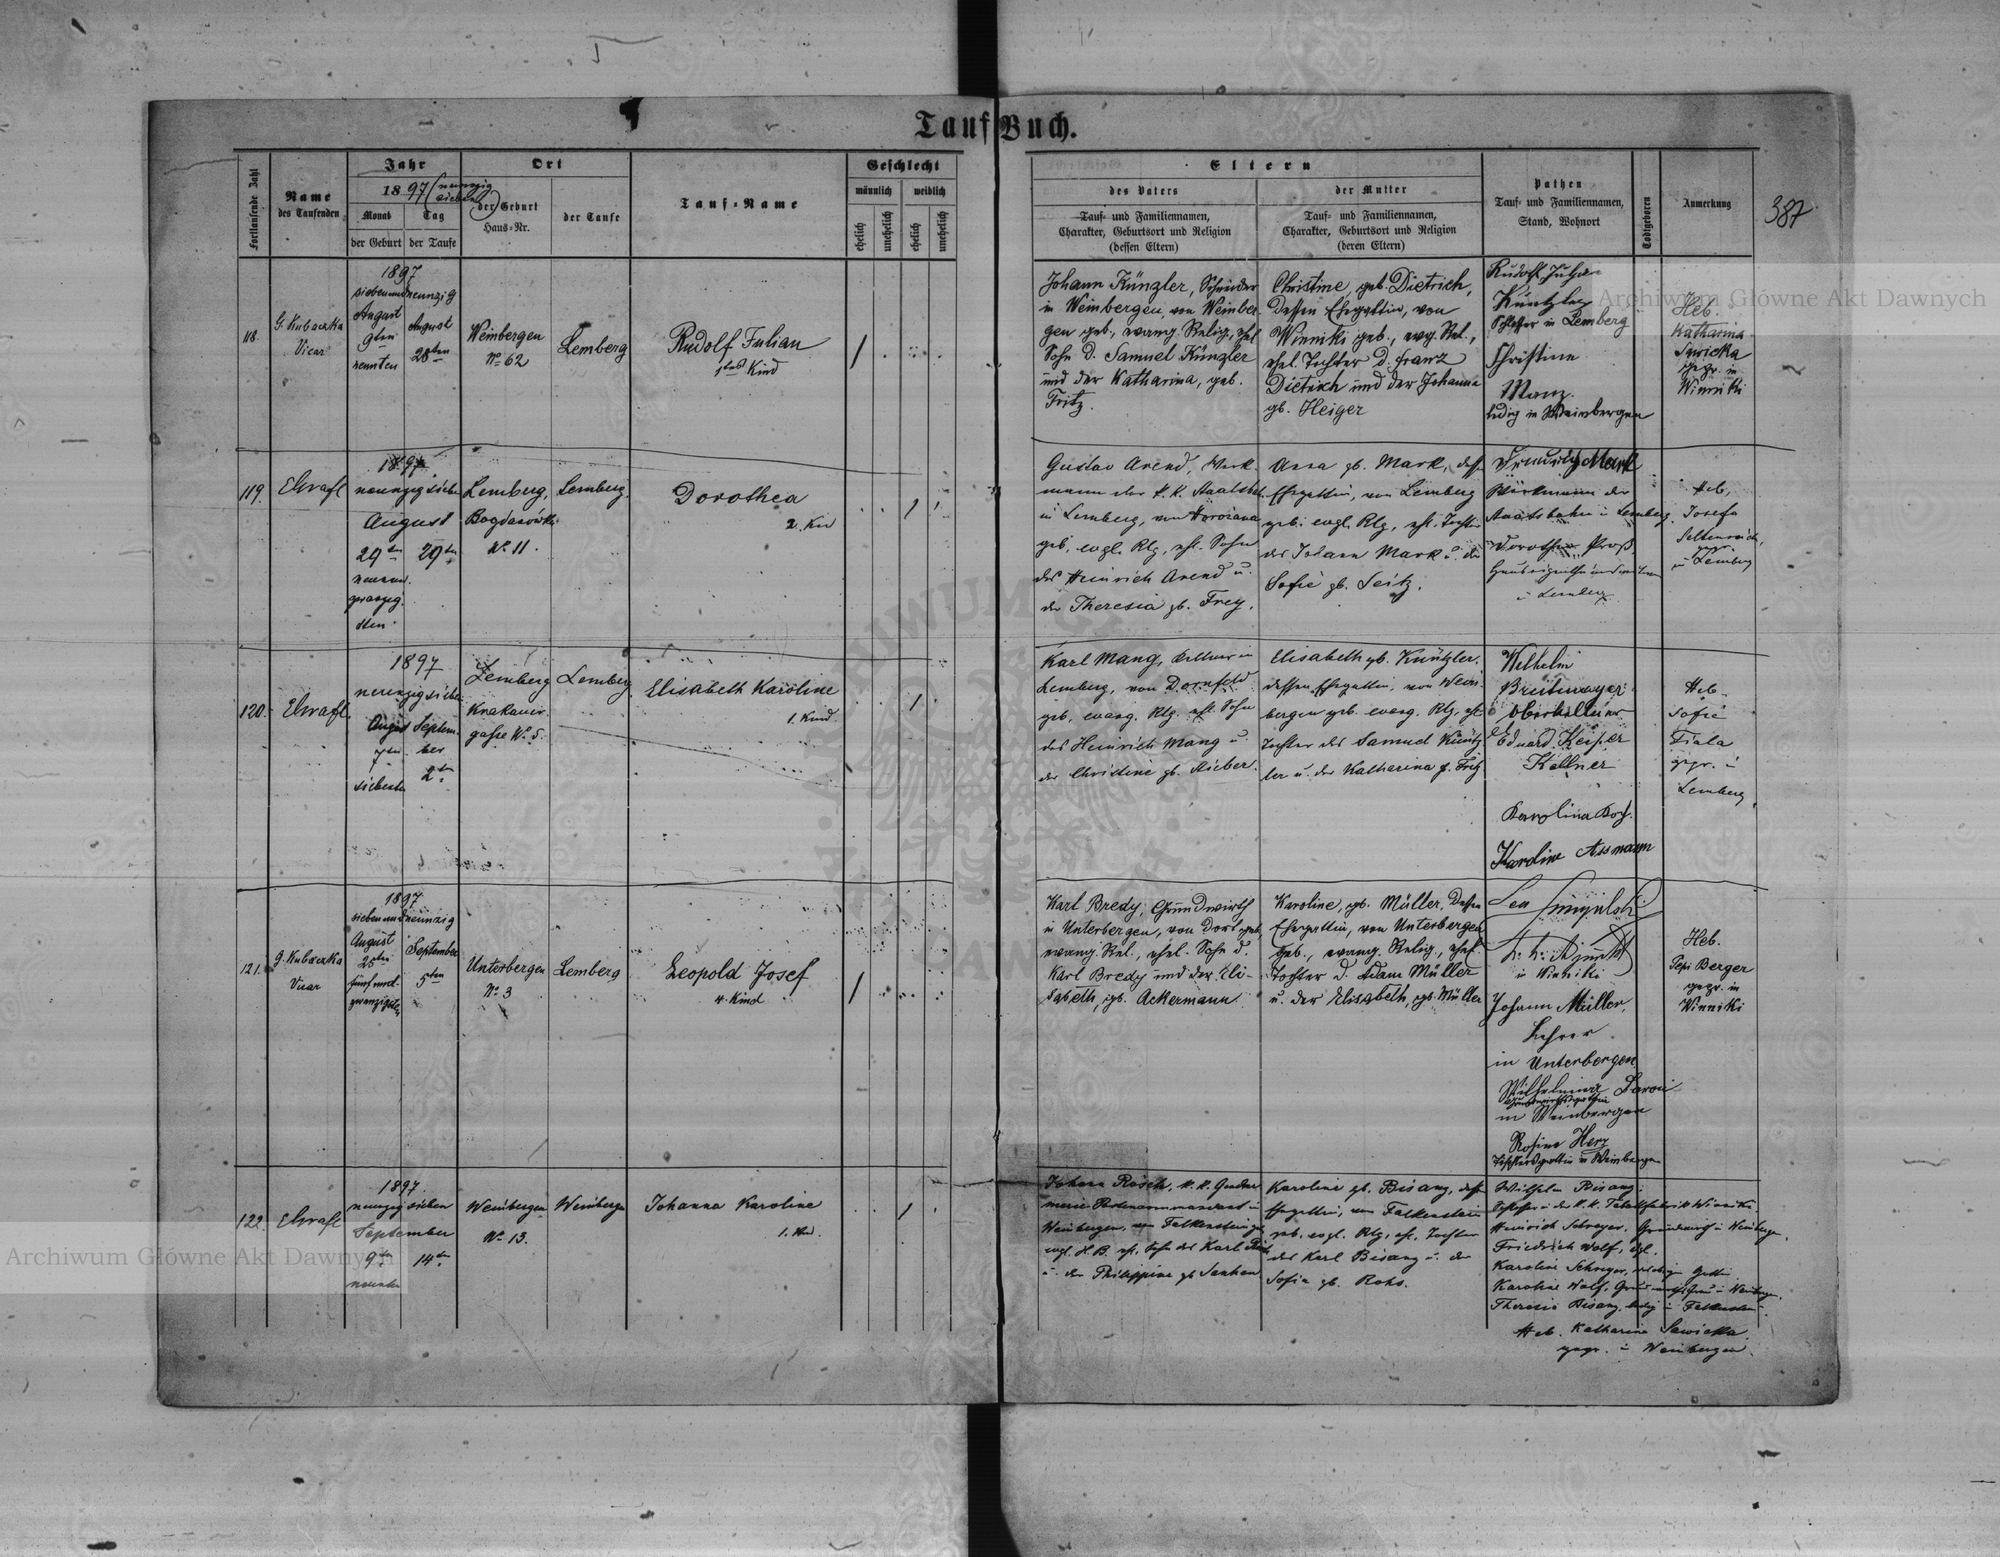 Tauf Buch.
387
Fortlaufende Zahl
Name
des Taufenden
Jahr
1897 (neunzig sieben)
Monat
Tag
der Geburt
der Taufe
Ort
der Geburt
Haus-Nr.
der Taufe
Tauf-Name
Geschlecht
männlich
weiblich
ehelich
unehelich
ehelich
unehelich
Eltern
des Vaters
Tauf- und Familiennamen,
Charakter, Geburtsort und Religion
(dessen Eltern)
der Mutter
Tauf- und Familiennamen,
Charakter, Geburtsort und Religion
(deren Eltern)
Pathen
Tauf- und Familiennamen,
Stand, Wohnort
Todtgeboren
Anmerkung
118.
G. Kubaczka
Vicar
1897
siebenundneunzig
August
9ten
neunten
August
28ten
Weinbergen
No 62
Lemberg
Rudolf Julian
1tes Kind
Johann Küntzler, Schneider
in Weinbergen, von Weinber
gen geb., evang. Relig., ehel.
Sohn d. Samuel Küntzler
und der Katharina, geb.
Fritz.
Christine, geb. Dietrich,
dessen Ehegattin, von
Winniki geb., evg. Rel.,
ehel. Tochter d. Franz
Dietrich und der Johanna
gb. Heiger
Rudolf Julian
Küntzler
Schlosser in Lemberg
Christine
Manz
ledig in Weinbergen
Heb.
Katharina
Sawicka
gepr. in
Winniki
119.
Ehrafl
1897
neunzig sieben
August
29ten
29ten
neunund
zwanzig
sten
Lemberg,
Bogdanówka
No 11.
Lemberg.
Dorothea
2. Kind
Gustav Arend, Werk-
mann der k. k. Staatsbah
in Lemberg, von Horożana
geb., evgl. Rlg., ehl. Sohn
des Heinrich Arend u.
der Theresia gb. Frey.
Anna gb. Mark, dess
Ehegattin, von Lemberg
geb. evgl. Rlg., ehl. Tochter
des Johann Mark u. der
Sofie gb. Seitz.
Friedrich Mark
Werkmann der
Staatsbahn in Lemberg.
Dorothea Proß
in Lemberg
Heb.
Josefa
gepr.
in Lemberg
120.
Ehrafl
1897
neunzig sieben
August
7ten
siebenten
Septem-
ber
2ten
Lemberg
Krakauer-
gasse No 5.
Lemberg
Elisabeth Karoline
1. Kind
Karl Mang, Kellner in
Lemberg, von Dornfeld
geb., evang. Rlg. ehl. Sohn
des Heinrich Mang u.
der Christine gb. Rieber.
Elisabeth gb. Küntzler.
dessen Ehegattin, von Wein-
bergen geb. evang. Rlg., ehl.
Tochter des Samuel Küntz
ler u. der Katharina g. Fritz
Wilhelm
Breitmayer
Oberkellner
Eduard Keiper
Kellner
Karolina Koch.
Karoline Assmann
Heb.
Sofie
Fiala
gepr. in
Lemberg.
121.
G. Kubaczka
Vicar
1897
siebenundneunzig
August
25ten
fünfund-
zwanzigsten
September
5ten
Unterbergen
No 3
Lemberg
Leopold Josef
4. Kind
Karl Bredy, Grundwirth
in Unterbergen, von Dort geb.
evang. Rel., ehel. Sohn d.
Karl Bredy und der Eli-
sabeth, gb. Ackermann
Karoline, gb. Müller, Dessen
Ehegattin, von Unterbergen
geb., evang. Relig., ehel.
Tochter d. Adam Müller
u. der Elisabeth, gb. Müller
Leon
in Winniki
Johann Müller,
Lehrer
in Unterbergen
Wilhelmina
in Weinbergen
Rosina Herz
Tischlersgattin in Weinbergen
Heb.
Pepi Berger
gepr. in
Winniki
122.
Ehrafl
1897.
neunzig sieben
September
9ten
14ten
neunten
Weinbergen
No 13.
Weinbergen
Johanna Karoline
1. Kind.
Johann Rosch, k. k. Gendar
merie Postenkommandant in
Weinbergen, von Falkenstein geb.
evgl. H. B. ehl. Sohn des Karl
u. der Philippine gb
Karoline gb. Bisanz, dess
Ehegattin, von Falkenstein
geb. evgl. Rlg., ehl. Tochter
des Karl Bisanz u. der
Sofie gb. Rohs.
Wilhelm Bisanz
Schlosser in der k. k. Tabakfabrik Winniki.
Heinrich Schreyer, Grundwirth in Weinbergen,
Friedrich Wolf, dgl.
Karoline Schreyer, obigen Gattin
Karoline Wolf, Grundwirthsfrau in Weinbergen,
Theresia Bisanz, ledig in Falkenstein
Heb. Katharina Sawicka
gepr. in Weinbergen.
Archiwum Główne Akt Dawnych
Archiwum Główne Akt Dawnych